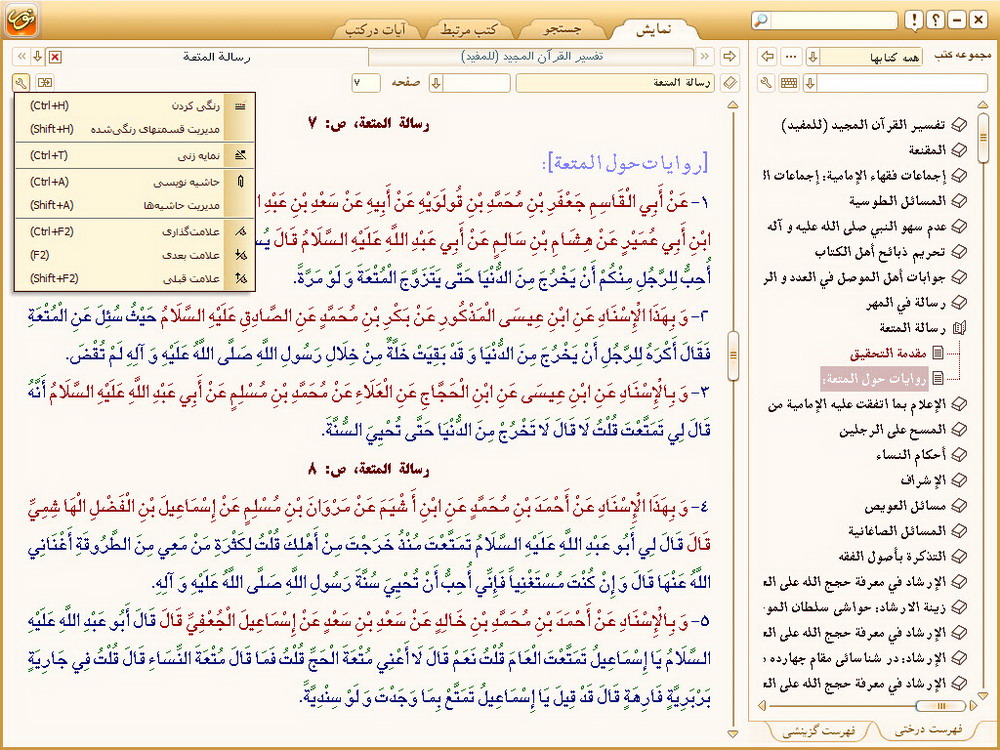 نمایش
جستجو
کتب مرتبط
آیات درکتب
مجموعه کتب
همه کتابها
تفسير القرآن المجيد (للمفيد)
رسالة المتعة
رسالة المتعة
صفحه
٧
رنگی کردن (Ctrl+H)
مدیریت قسمتهای رنگی‌شده (Shift+H)
نمایه زنی (Ctrl+T)
حاشیه نویسی (Ctrl+A)
مدیریت حاشیه‌ها (Shift+A)
علامت‌گذاری (Ctrl+F2)
علامت بعدی (F2)
علامت قبلی (Shift+F2)
تفسير القرآن المجيد (للمفيد)
المقنعة
إجماعات فقهاء الإمامية: إجماعات ال
المسائل الطوسية
عدم سهو النبي صلى الله عليه و آله
تحريم ذبائح أهل الكتاب
جوابات أهل الموصل في العدد و الر
رسالة في المهر
رسالة المتعة
مقدمة التحقيق
روايات حول المتعة:
الإعلام بما اتفقت عليه الإمامية من
المسح على الرجلين
أحكام النساء
الإشراف
مسائل العويص
المسائل الصاغانية
التذكرة بأصول الفقه
الإرشاد في معرفة حجج الله على الع
زينة الارشاد: حواشى سلطان المو
الإرشاد في معرفة حجج الله على الع
الإرشاد: در شناسائى مقام چهارده م
الإرشاد في معرفة حجج الله على الع
فهرست درختی
فهرست گزینشی
رسالة المتعة، ص: ٧
[روايات حول المتعة]:
١- عَنْ أَبِي الْقَاسِمِ جَعْفَرِ بْنِ مُحَمَّدِ بْنِ قُولَوَيْهِ عَنْ أَبِيهِ عَنْ سَعْدِ بْنِ عَبْدِ ا
ابْنِ أَبِي عُمَيْرٍ عَنْ هِشَامِ بْنِ سَالِمٍ عَنْ أَبِي عَبْدِ اللَّهِ عَلَيْهِ السَّلَامُ قَالَ يُسـ
أُحِبُّ لِلرَّجُلِ مِنْكُمْ أَنْ يَخْرُجَ مِنَ الدُّنْيَا حَتَّى يَتَزَوَّجَ الْمُتْعَةَ وَ لَوْ مَرَّةً.
٢- وَ بِهَذَا الْإِسْنَادِ عَنِ ابْنِ عِيسَى الْمَذْكُورِ عَنْ بَكْرِ بْنِ مُحَمَّدٍ عَنِ الصَّادِقِ عَلَيْهِ السَّلَامُ حَيْثُ سُئِلَ عَنِ الْمُتْعَةِ
فَقَالَ أَكْرَهُ لِلرَّجُلِ أَنْ يَخْرُجَ مِنَ الدُّنْيَا وَ قَدْ بَقِيَتْ خَلَّةٌ مِنْ خِلَالِ رَسُولِ اللَّهِ صَلَّى اللَّهُ عَلَيْهِ وَ آلِهِ لَمْ تُقْضَ.
٣- وَ بِالْإِسْنَادِ عَنِ ابْنِ عِيسَى عَنِ ابْنِ الْحَجَّاجِ عَنِ الْعَلَاءِ عَنْ مُحَمَّدِ بْنِ مُسْلِمٍ عَنْ أَبِي عَبْدِ اللَّهِ عَلَيْهِ السَّلَامُ أَنَّهُ
قَالَ لِي تَمَتَّعْتَ قُلْتُ لَا قَالَ لَا تَخْرُجْ مِنَ الدُّنْيَا حَتَّى تُحْيِيَ السُّنَّةَ.
رسالة المتعة، ص: ٨
٤- وَ بِهَذَا الْإِسْنَادِ عَنْ أَحْمَدَ بْنِ مُحَمَّدٍ عَنِ ابْنِ أَشْيَمَ عَنْ مَرْوَانَ بْنِ مُسْلِمٍ عَنْ إِسْمَاعِيلَ بْنِ الْفَضْلِ الْهَاشِمِيِّ
قَالَ قَالَ لِي أَبُو عَبْدِ اللَّهِ عَلَيْهِ السَّلَامُ تَمَتَّعْتَ مُنْذُ خَرَجْتَ مِنْ أَهْلِكَ قُلْتُ لِكَثْرَةِ مَنْ مَعِي مِنَ الطَّرُوقَةِ أَغْنَانِي
اللَّهُ عَنْهَا قَالَ وَ إِنْ كُنْتَ مُسْتَغْنِياً فَإِنِّي أُحِبُّ أَنْ تُحْيِيَ سُنَّةَ رَسُولِ اللَّهِ صَلَّى اللَّهُ عَلَيْهِ وَ آلِهِ.
٥- وَ بِالْإِسْنَادِ عَنْ أَحْمَدَ بْنِ مُحَمَّدِ بْنِ خَالِدٍ عَنْ سَعْدِ بْنِ سَعْدٍ عَنْ إِسْمَاعِيلَ الْجُعْفِيِّ قَالَ قَالَ أَبُو عَبْدِ اللَّهِ عَلَيْهِ
السَّلَامُ يَا إِسْمَاعِيلُ تَمَتَّعْتَ الْعَامَ قُلْتُ نَعَمْ قَالَ لَا أَعْنِي مُتْعَةَ الْحَجِّ قُلْتُ فَمَا قَالَ مُتْعَةَ النِّسَاءِ قَالَ قُلْتُ فِي جَارِيَةٍ
بَرْبَرِيَّةٍ فَارِهَةٍ قَالَ قَدْ قِيلَ يَا إِسْمَاعِيلُ تَمَتَّعْ بِمَا وَجَدْتَ وَ لَوْ سِنْدِيَّةً.